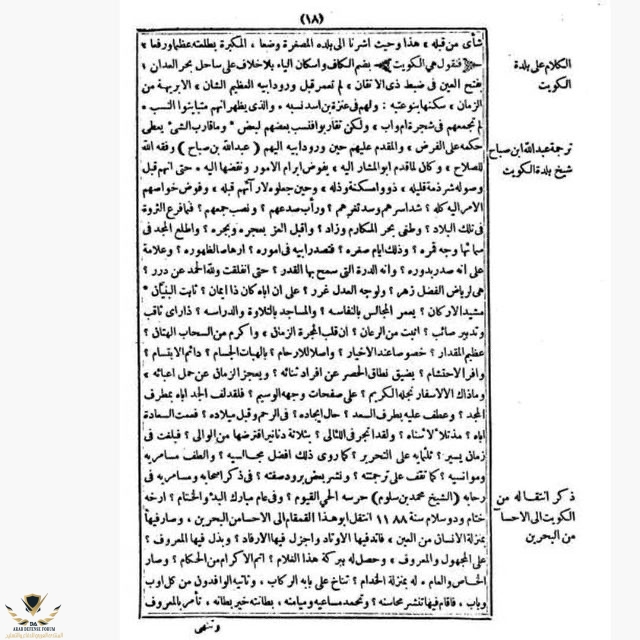 (١٨)
شأى من قبله ، هذا وحيث اشرنا الى بلده المصغرة وضعا ، المكبرة بطلعته عظما ورفعا ،
فنقول هى الكويت بضم الكاف واسكان الياء بلا خلاف على ساحل بحر العدان ،
يفتح العين فى ضبط ذى الاتقان ، لم تعمر قبل ورود ابيه العظيم الشان ، الا برهة من
الزمان ، سكنها بنو عتبة ، ولهم فى عنزة بن اسد نسبه ، والذى يظهر انهم متباينوا النسب ،
لم تجمعهم فى شجرة ام واب ، ولكن تقاربوا فنسب بعضهم لبعض ، وما قارب الشئ يعطى
حكمه على الفرض ، والمقدم عليهم حين ورود ابيه اليهم ( عبد الله بن صباح ) وفقه الله
للصلاح ، وكان لما قدم ابو المشار اليه ، يفوض ابرام الامور ونقضها اليه ، حتى انهم قبل
وصوله شرذمة قليله ، ذووا مسكنة وذله ، وحين جعلوه لارآئهم قبله ، وفوض خواصهم
الامر اليه كله ؟ شد اسرهم وسد ثغرهم ؟ ورأب صدعهم ؟ ونصب جمعهم ؟ فنما فرع الثروة
فى تلك البلاد ؟ وطفى بحر المكارم وزاد ؟ واقبل العز بعجره وبجره ؟ واطلع المجد فى
سمائها وجه قمره ؟ وذلك ايام صغره ؟ فتصدر ابيه فى اموره ؟ ارهاصا لظهوره ؟ وعلامة
على انه صدر بدوره ؟ وانه الدرة التى سمح بها القدر ؟ حتى انفلقت ولله الحمد عن درر ؟
هى لرياض الفضل زهر ؟ ولوجه العدل غرر ؟ على ان اباه كان ذا ايمان ؟ ثابت البنيان ،
مشيد الاركان ؟ يعمر المجالس بالنفاسه ؟ والمساجد بالتلاوة والدراسه ؟ ذا راى ثاقب
وتدبير صائب ؟ اثبت من الرعان ؟ ان قلب المجرة الزمان ، واكرم من السحاب الهتان ؟
عظيم المقدار ؟ خصوصا عند الاخيار ؟ واصلا للارحام ؟ بالهبات الجسام ؟ دائم الابتسام ؟
وافر الاحتشام ؟ يضيق نطاق الحصر عن افراد ثنائه ؟ ويعجز الزمان عن حمل اعبائه ،
وما ذاك الا لاسفار نجله الكريم ؟ على صفحات وجهه الوسيم ؟ فلقد لف الجد اباه بمطرف
المجد ؟ وعطف عليه بطرف السعد ؟ حال ايجاده ؟ فى الرحم وقبل ميلاده ؟ فعمت السعادة
اباه ؟ مذ تلألأ سناه ؟ ولقد اتجر فى اللئالى ؟ بثلاثة دنانير اقترضها من الوالى ؟ فبلغت فى
زمان يسير ؟ ثلثمايه على التحرير ؟ كما روى ذلك افضل مجالسيه ؟ والطف مسامريه
وموانسيه ؟ كما تقف على ترجمته ؟ ونشر بعض برود صفته ؟ فى ذكر اصحابه ومسامريه فى
رحابه ( الشيخ محمد بن سلوم ) حرسه الحى القيوم ؟ وفى عام مبارك البدؤ والختام ؟ ارخه
ختام ودوسلام سنة ١١٨٨ انتقل ابو هذا القمقام الى الاحسا من البحرين ، وصار فيها
بمنزلة الانسان من العين ، فاندفيها الاوتاد واجزل فيها الارفاد ؟ وبذل فيها المعروف ؟
على المجهول والمعروف ، وحصل له ببركة هذا الغلام ؟ اتم الاكرام من الحكام ؟ وصار
الخاص والعام ، له بمنزلة الخدام ؟ تناخ على بابه الركاب ، وتاتيه الوافدون من كل اوب
وباب ، فاقام فيها تنشر محاسنه ؟ وتحمد مساعيه وميامنه ، بطانته خير بطانه ، تأمر بالمعروف
وتنهى
الكلام على بلدة
الكويت
ترجمة عبد الله ابن صباح
شيخ بلدة الكويت
ذكر انتقاله من
الكويت الى الاحسا
من البحرين
DA
ARAB DEFENSE FORUM